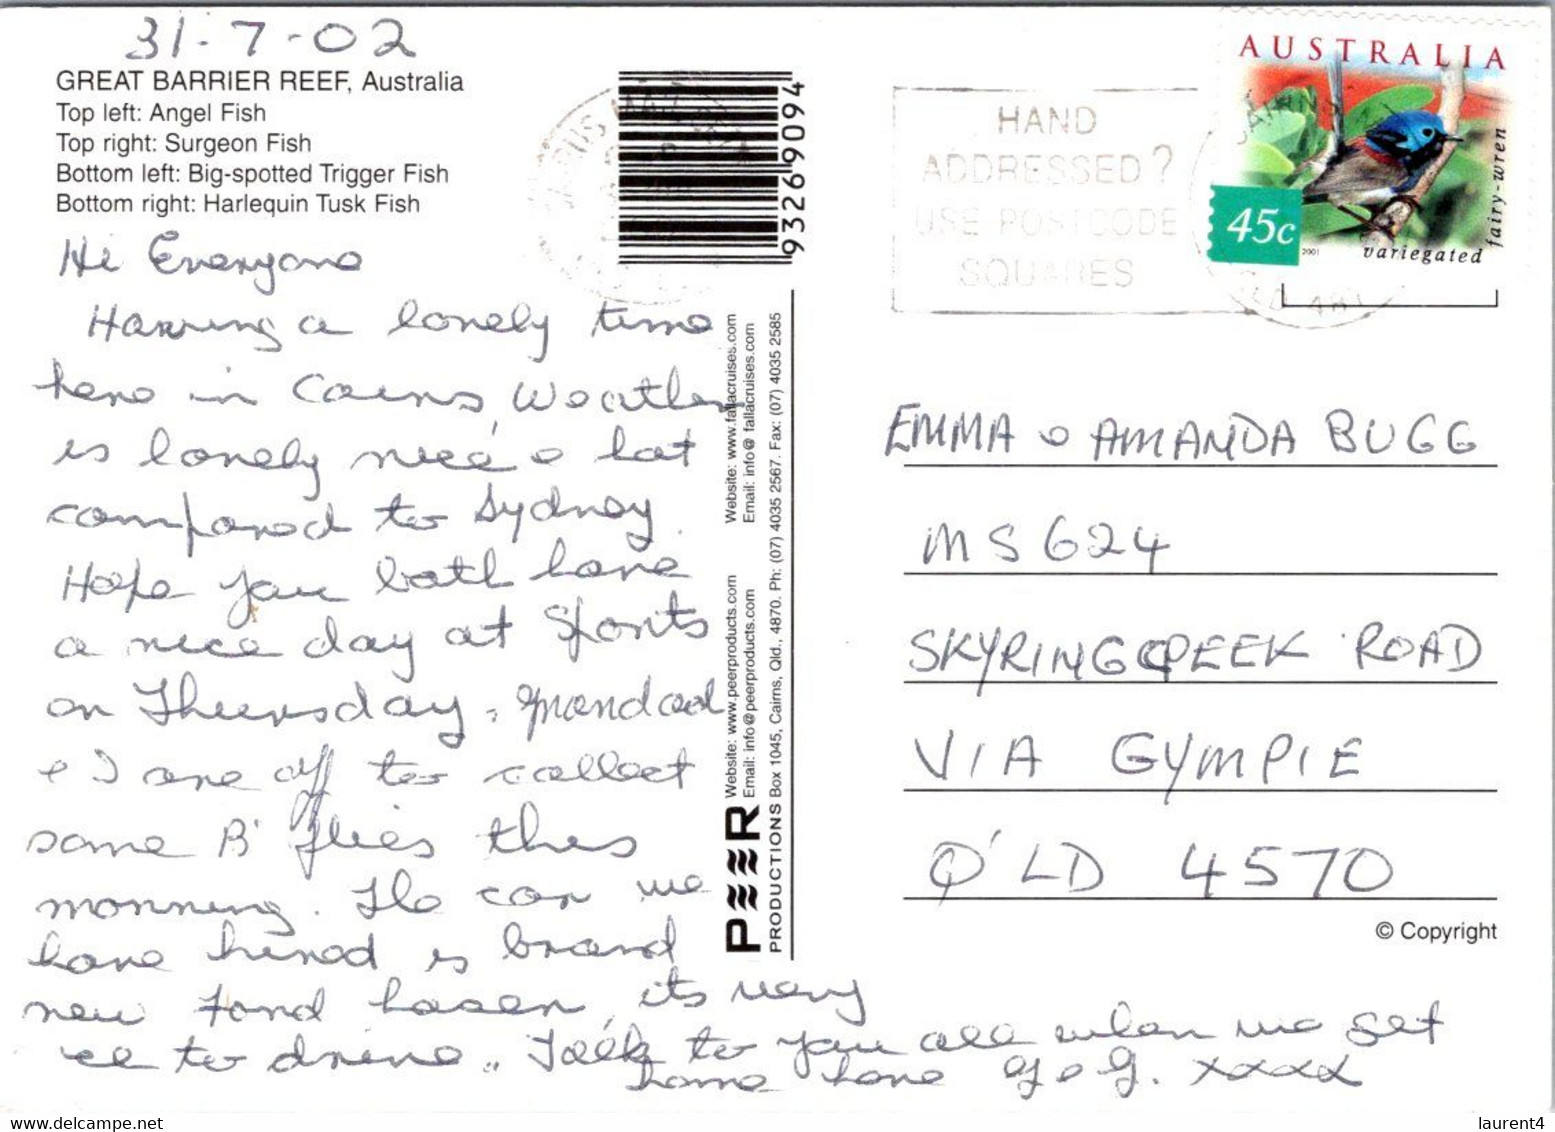 31-7-02
GREAT BARRIER REEF, Australia
Top left: Angel Fish
Top right: Surgeon Fish
Bottom left: Big-spotted Trigger Fish
Bottom right: Harlequin Tusk Fish
Hi Everyone
Having a lovely time
here in Cairns, Weather
is lovely nice & hot
compared to Sydney.
Hope you both have
a nice day at Sports
on Thursday, Grandad
& I are off to collect
some B'flies this
morning. The car we
have hired is brand
new Ford Laser, its very
ce to drive.. Talk to you all when we get
home love G & G. xxxx
9326 9094
Website: www.fallacruises.com
Email: info@ fallacruises.com
Website: www.peerproducts.com
Email: info@peerproducts.com
PEER PRODUCTIONS Box 1045, Cairns, Qld., 4870. Ph: (07) 4035 2567. Fax: (07) 4035 2585
HAND
ADDRESSED?
USE POSTCODE
SQUARES
AUSTRALIA
45c
2001
variegated
fairy-wren
EMMA & AMANDA BUGG
MS 624
SKYRINGCREEK ROAD
VIA GYMPIE
Q'LD 4570
© Copyright
laurent4